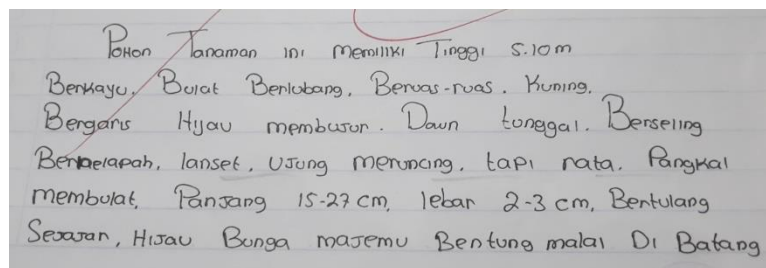 Pohon Tanaman ini memiliki Tinggi 5.10m
Berkayu, Bulat Berlubang, Beruas-ruas, Kuning,
Bergaris Hijau membusur. Daun tunggal. Berseling
Berpelapah, lanset, Ujung meruncing, tapi rata, Pangkal
membulat, Panjang 15-27 cm, lebar 2-3 cm, Bertulang
Sejajar, Hijau Bunga majemu Bentung malai Di Batang